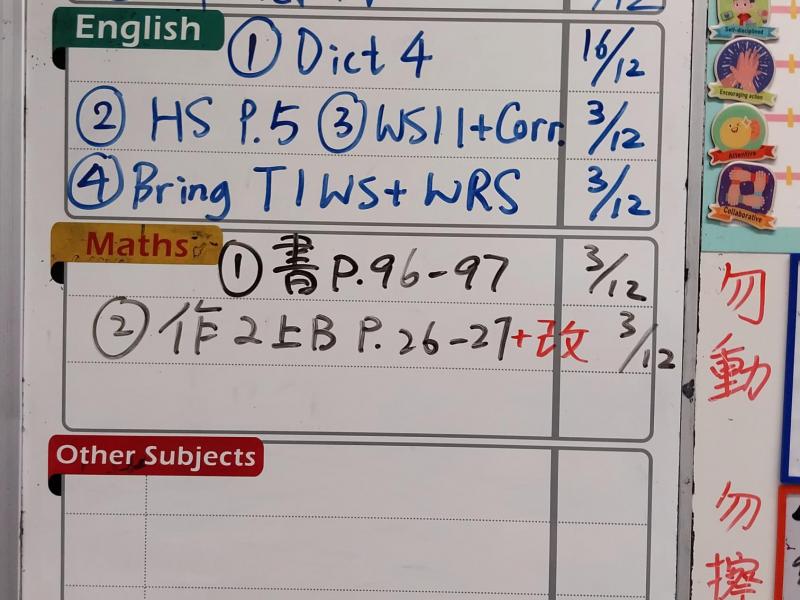 English
① Dict 4 16/12
② HS P.5 ③ WS11+Corr. 3/12
④ Bring T1WS+ WRS 3/12
Maths
① 書 P.96-97 3/12
② 作 2上B P.26-27+改 3/12
Other Subjects
Self-disciplined
Encouraging action
Attentive
Collaborative
勿動
勿擦